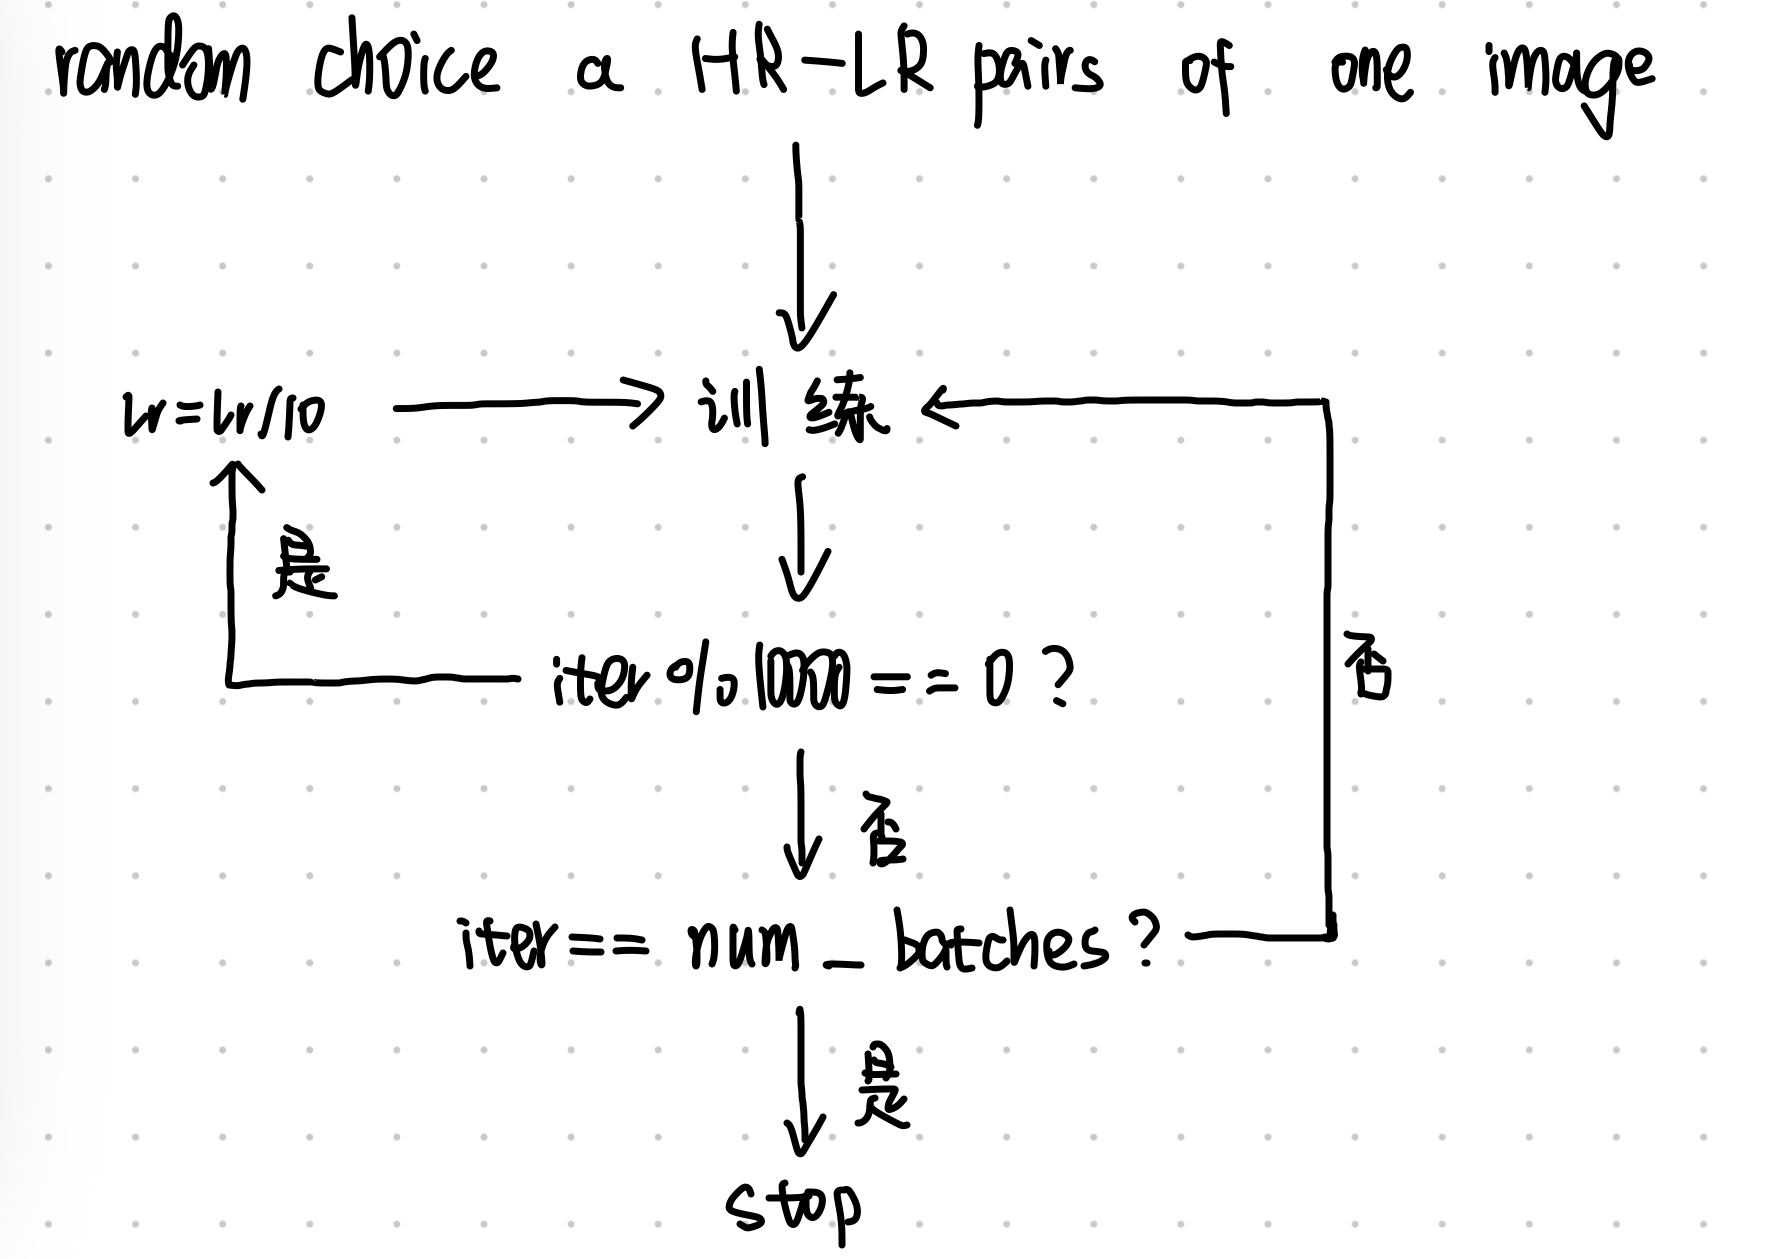 random choice a HR-LR pairs of one image
lr=lr/10
训练
是
iter%10000==0?
否
否
iter==num_batches?
是
stop